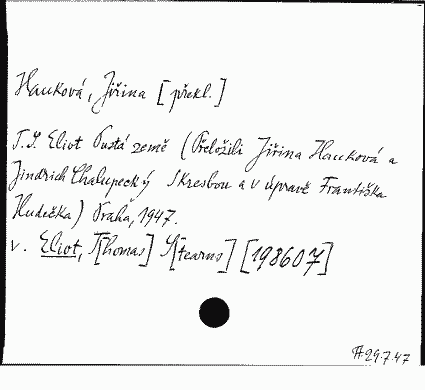 Hauková, Jiřina [překl.]
T.S. Eliot Pustá země (Přeložili Jiřina Hauková a
Jindřich Chalupecký S kresbou a v úpravě Františka
Hudečka) Praha, 1947.
v. Eliot, T[homas] S[tearns] [198607]
29.7.47